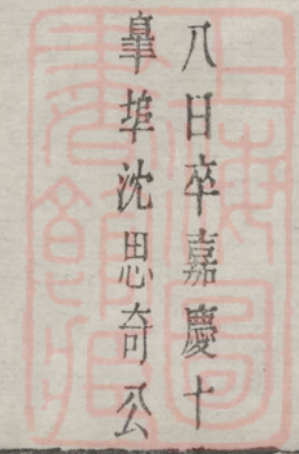 八日卒嘉慶十
臯埠沈思奇公